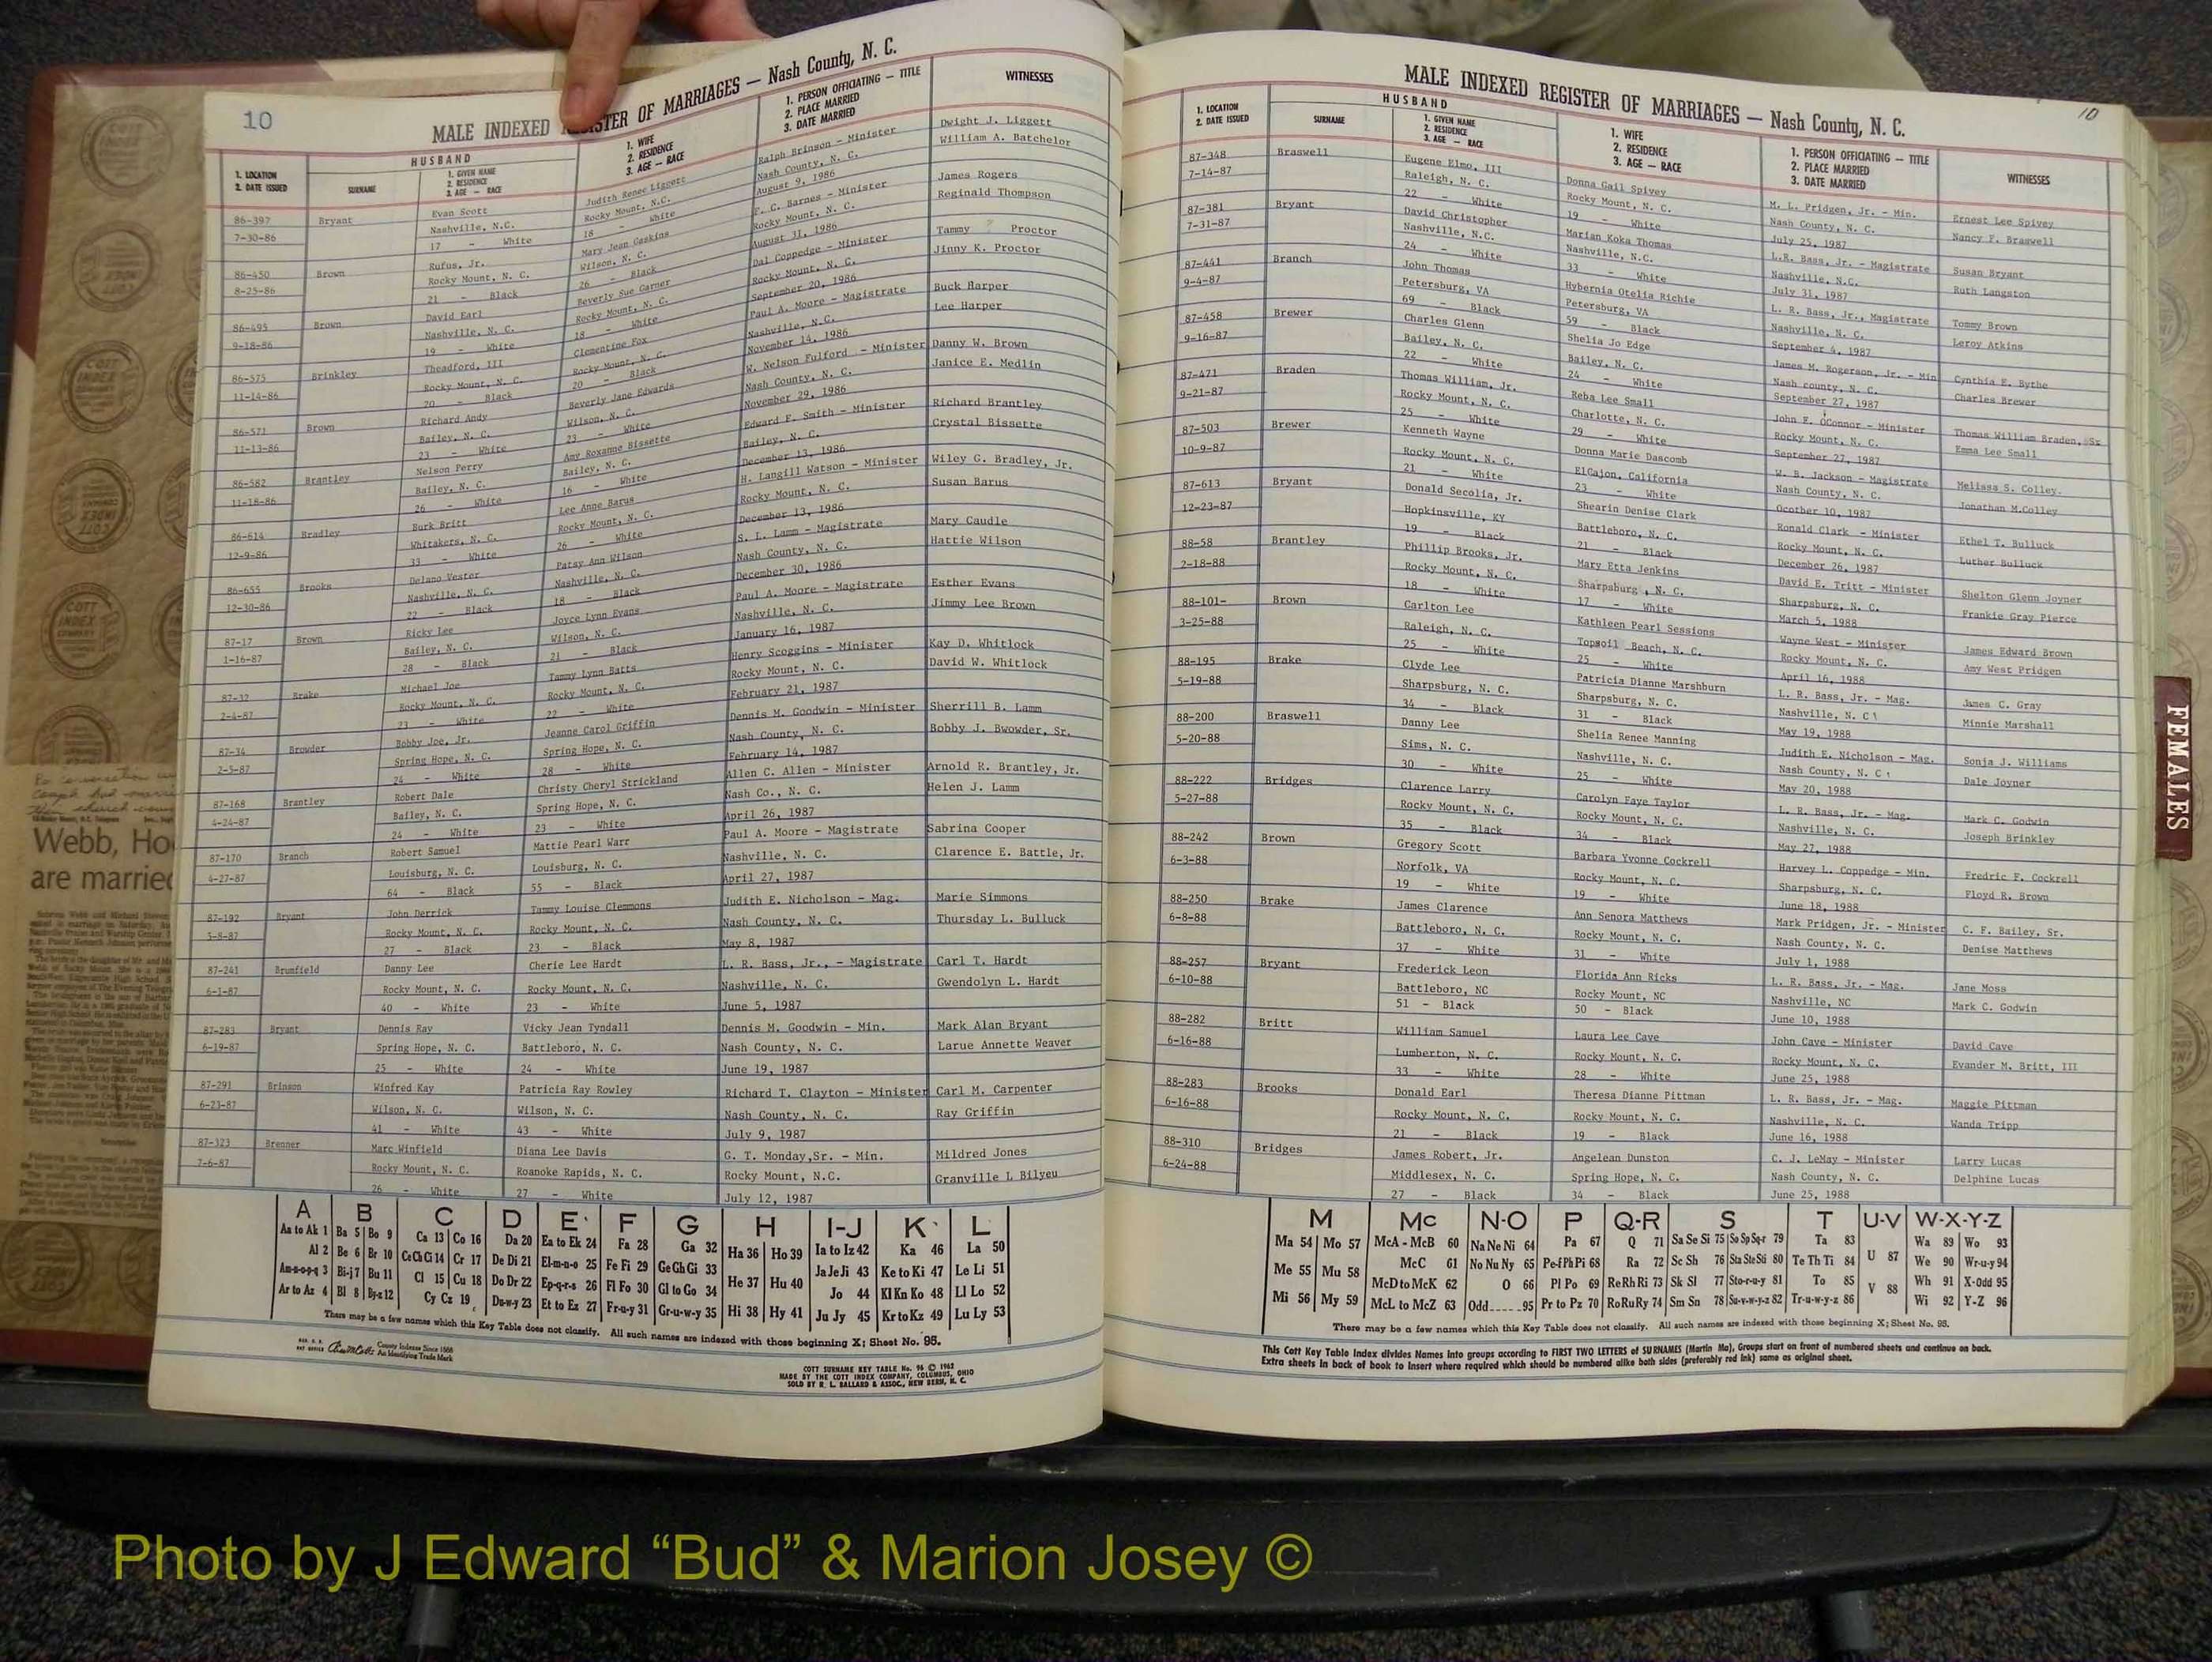 10
MALE INDEXED REGISTER OF MARRIAGES — Nash County, N. C.
1. LOCATION
2. DATE ISSUED
HUSBAND
SURNAME
1. GIVEN NAME
2. RESIDENCE
3. AGE — RACE
1. WIFE
2. RESIDENCE
3. AGE — RACE
1. PERSON OFFICIATING — TITLE
2. PLACE MARRIED
3. DATE MARRIED
WITNESSES
86-397 Bryant Evan Scott Judith Renee Liggett Ralph Brinson - Minister Dwight J. Liggett
7-30-86 Nashville, N.C. Rocky Mount, N.C. Nash County, N. C. William A. Batchelor
17 - White 18 - White August 9, 1986
86-450 Brown Rufus, Jr. Mary Jean Gaskins F. C. Barnes - Minister James Rogers
8-25-86 Rocky Mount, N. C. Wilson, N. C. Rocky Mount, N. C. Reginald Thompson
21 - Black 26 - Black August 31, 1986
86-495 Brown David Earl Beverly Sue Garner Dal Coppedge - Minister Tammy Proctor
9-18-86 Nashville, N. C. Rocky Mount, N. C. Rocky Mount, N. C. Jinny K. Proctor
19 - White 18 - White September 20, 1986
86-575 Brinkley Theadford, III Clementine Fox Paul A. Moore - Magistrate Buck Harper
11-14-86 Rocky Mount, N. C. Rocky Mount, N. C. Nashville, N.C. Lee Harper
20 - Black 20 - Black November 14, 1986
86-571 Brown Richard Andy Beverly Jane Edwards W. Nelson Fulford - Minister Danny W. Brown
11-13-86 Bailey, N. C. Wilson, N. C. Nash County, N. C. Janice E. Medlin
23 - White 23 - White November 29, 1986
86-582 Brantley Nelson Perry Amy Roxanne Bissette Edward F. Smith - Minister Richard Brantley
11-18-86 Bailey, N. C. Bailey, N. C. Bailey, N. C. Crystal Bissette
26 - White 16 - White December 13, 1986
86-614 Bradley Burk Britt Lee Anne Barus H. Langill Watson - Minister Wiley G. Bradley, Jr.
12-9-86 Whitakers, N. C. Rocky Mount, N. C. Rocky Mount, N. C. Susan Barus
33 - White 26 - White December 13, 1986
86-655 Brooks Delano Vester Patsy Ann Wilson S. L. Lamm - Magistrate Mary Caudle
12-30-86 Nashville, N. C. Nashville, N. C. Nash County, N. C. Hattie Wilson
22 - Black 18 - Black December 30, 1986
87-17 Brown Ricky Lee Joyce Lynn Evans Paul A. Moore - Magistrate Esther Evans
1-16-87 Bailey, N. C. Wilson, N. C. Nashville, N. C. Jimmy Lee Brown
28 - Black 21 - Black January 16, 1987
87-32 Brake Michael Joe Tammy Lynn Batts Henry Scoggins - Minister Kay D. Whitlock
2-4-87 Rocky Mount, N. C. Rocky Mount, N. C. Rocky Mount, N. C. David W. Whitlock
23 - White 22 - White February 21, 1987
87-34 Browder Bobby Joe, Jr. Jeanne Carol Griffin Dennis M. Goodwin - Minister Sherrill B. Lamm
2-5-87 Spring Hope, N. C. Spring Hope, N. C. Nash County, N. C. Bobby J. Bwowder, Sr.
24 - White 28 - White February 14, 1987
87-168 Brantley Robert Dale Christy Cheryl Strickland Allen C. Allen - Minister Arnold R. Brantley, Jr.
4-24-87 Bailey, N. C. Spring Hope, N. C. Nash Co., N. C. Helen J. Lamm
24 - White 23 - White April 26, 1987
87-170 Branch Robert Samuel Mattie Pearl Warr Paul A. Moore - Magistrate Sabrina Cooper
4-27-87 Louisburg, N. C. Louisburg, N. C. Nashville, N. C. Clarence E. Battle, Jr.
64 - Black 55 - Black April 27, 1987
87-192 Bryant John Derrick Tammy Louise Clemmons Judith E. Nicholson - Mag. Marie Simmons
5-8-87 Rocky Mount, N. C. Rocky Mount, N. C. Nash County, N. C. Thursday L. Bulluck
27 - Black 23 - Black May 8, 1987
87-241 Brumfield Danny Lee Cherie Lee Hardt L. R. Bass, Jr., - Magistrate Carl T. Hardt
6-1-87 Rocky Mount, N. C. Rocky Mount, N. C. Nashville, N. C. Gwendolyn L. Hardt
40 - White 23 - White June 5, 1987
87-283 Bryant Dennis Ray Vicky Jean Tyndall Dennis M. Goodwin - Min. Mark Alan Bryant
6-19-87 Spring Hope, N. C. Battleboro, N. C. Nash County, N. C. Larue Annette Weaver
25 - White 24 - White June 19, 1987
87-291 Brinson Winfred Kay Patricia Ray Rowley Richard T. Clayton - Minister Carl M. Carpenter
6-23-87 Wilson, N. C. Wilson, N. C. Nash County, N. C. Ray Griffin
41 - White 43 - White July 9, 1987
87-323 Brenner Marc Winfield Diana Lee Davis G. T. Monday,Sr. - Min. Mildred Jones
7-6-87 Rocky Mount, N. C. Roanoke Rapids, N. C. Rocky Mount, N.C. Granville L Bilyeu
26 - White 27 - White July 12, 1987
A B C D E F G H I-J K L
Aa to Ak 1 Ba 5 Bo 9 Ca 13 Co 16 Da 20 Ea to Ek 24 Fa 28 Ga 32 Ha 36 Ho 39 Ia to Iz 42 Ka 46 La 50
Al 2 Be 6 Br 10 Ce Ch Ci 14 Cr 17 De Di 21 El-m-n-o 25 Fe Fi 29 Ge Gh Gi 33 He 37 Hu 40 Ja Je Ji 43 Ke to Ki 47 Le Li 51
Am-n-o-p-q 3 Bi-j 7 Bu 11 Cl 15 Cu 18 Do Dr 22 Ep-q-r-s 26 Fl Fo 30 Gl to Go 34 Jo 44 Kl Kn Ko 48 Ll Lo 52
Ar to Az 4 Bl 8 By-z 12 Cy Cz 19 Du-w-y 23 Et to Ez 27 Fr-u-y 31 Gr-u-w-y 35 Hi 38 Hy 41 Ju Jy 45 Kr to Kz 49 Lu Ly 53
There may be a few names which this Key Table does not classify. All such names are indexed with those beginning X; Sheet No. 95.
County Indexes Since 1888
An Identifying Trade Mark
COTT SURNAME KEY TABLE No. 96 © 1962
MADE BY THE COTT INDEX COMPANY, COLUMBUS, OHIO
SOLD BY R. L. BALLARD & ASSOC., NEW BERN, N. C.
10
MALE INDEXED REGISTER OF MARRIAGES — Nash County, N. C.
1. LOCATION
2. DATE ISSUED
HUSBAND
SURNAME
1. GIVEN NAME
2. RESIDENCE
3. AGE — RACE
1. WIFE
2. RESIDENCE
3. AGE — RACE
1. PERSON OFFICIATING — TITLE
2. PLACE MARRIED
3. DATE MARRIED
WITNESSES
87-348 Braswell Eugene Elmo, III Donna Gail Spivey M. L. Pridgen, Jr. - Min. Ernest Lee Spivey
7-14-87 Raleigh, N. C. Rocky Mount, N. C. Nash County, N. C. Nancy F. Braswell
22 - White 19 - White July 25, 1987
87-381 Bryant David Christopher Marian Koka Thomas L.R. Bass, Jr. - Magistrate Susan Bryant
7-31-87 Nashville, N.C. Nashville, N.C. Nashville, N.C. Ruth Langston
24 - White 33 - White July 31, 1987
87-441 Branch John Thomas Hybernia Otelia Richie L. R. Bass, Jr., Magistrate Tommy Brown
9-4-87 Petersburg, VA Petersburg, VA Nashville, N. C. Leroy Atkins
69 - Black 59 - Black September 4, 1987
87-458 Brewer Charles Glenn Shelia Jo Edge James M. Rogerson, Jr. - Min Cynthia E. Bythe
9-16-87 Bailey, N. C. Bailey, N. C. Nash county, N. C. Charles Brewer
22 - White 24 - White September 27, 1987
87-471 Braden Thomas William, Jr. Reba Lee Small John F. OConnor - Minister Thomas William Braden, Sr
9-21-87 Rocky Mount, N. C. Charlotte, N. C. Rocky Mount, N. C. Emma Lee Small
25 - White 29 - White September 27, 1987
87-503 Brewer Kenneth Wayne Donna Marie Dascomb W. B. Jackson - Magistrate Melissa S. Colley.
10-9-87 Rocky Mount, N. C. ElCajon, California Nash County, N. C. Jonathan M.Colley
21 - White 23 - White Ocotber 10, 1987
87-613 Bryant Donald Secolia, Jr. Shearin Denise Clark Ronald Clark - Minister Ethel T. Bulluck
12-23-87 Hopkinsville, KY Battleboro, N. C. Rocky Mount, N. C. Luther Bulluck
19 - Black 21 - Black December 26, 1987
88-58 Brantley Phillip Brooks, Jr. Mary Etta Jenkins David E. Tritt - Minister Shelton Glenn Joyner
2-18-88 Rocky Mount, N. C. Sharpsburg, N. C. Sharpsburg, N. C. Frankie Gray Pierce
18 - White 17 - White March 5, 1988
88-101- Brown Carlton Lee Kathleen Pearl Sessions Wayne West - Minister James Edward Brown
3-25-88 Raleigh, N. C. Topsoil Beach, N. C. Rocky Mount, N. C. Amy West Pridgen
25 - White 25 - White April 16, 1988
88-195 Brake Clyde Lee Patricia Dianne Marshburn L. R. Bass, Jr. - Mag. James C. Gray
5-19-88 Sharpsburg, N. C. Sharpsburg, N. C. Nashville, N. C. Minnie Marshall
34 - Black 31 - Black May 19, 1988
88-200 Braswell Danny Lee Shelia Renee Manning Judith E. Nicholson - Mag. Sonja J. Williams
5-20-88 Sims, N. C. Nashville, N. C. Nash County, N. C. Dale Joyner
30 - White 25 - White May 20, 1988
88-222 Bridges Clarence Larry Carolyn Faye Taylor L. R. Bass, Jr. - Mag. Mark C. Godwin
5-27-88 Rocky Mount, N. C. Rocky Mount, N. C. Nashville, N. C. Joseph Brinkley
35 - Black 34 - Black May 27, 1988
88-242 Brown Gregory Scott Barbara Yvonne Cockrell Harvey L. Coppedge - Min. Fredric F. Cockrell
6-3-88 Norfolk, VA Rocky Mount, N. C. Sharpsburg, N. C. Floyd R. Brown
19 - White 19 - White June 18, 1988
88-250 Brake James Clarence Ann Senora Matthews Mark Pridgen, Jr. - Minister C. F. Bailey, Sr.
6-8-88 Battleboro, N. C. Rocky Mount, N. C. Nash County, N. C. Denise Matthews
37 - White 31 - White July 1, 1988
88-257 Bryant Frederick Leon Florida Ann Ricks L. R. Bass, Jr. - Mag. Jane Moss
6-10-88 Battleboro, NC Rocky Mount, NC Nashville, NC Mark C. Godwin
51 - Black 50 - Black June 10, 1988
88-282 Britt William Samuel Laura Lee Cave John Cave - Minister David Cave
6-16-88 Lumberton, N. C. Rocky Mount, N. C. Rocky Mount, N. C. Evander M. Britt, III
33 - White 28 - White June 25, 1988
88-283 Brooks Donald Earl Theresa Dianne Pittman L. R. Bass, Jr. - Mag. Maggie Pittman
6-16-88 Rocky Mount, N. C. Rocky Mount, N. C. Nashville, N. C. Wanda Tripp
21 - Black 19 - Black June 16, 1988
88-310 Bridges James Robert, Jr. Angelean Dunston C. J. LeMay - Minister Larry Lucas
6-24-88 Middlesex, N. C. Spring Hope, N. C. Nash County, N. C. Delphine Lucas
27 - Black 34 - Black June 25, 1988
M Mc N-O P Q-R S T U-V W-X-Y-Z
Ma 54 Mo 57 McA - McB 60 Na Ne Ni 64 Pa 67 Q 71 Sa Se Si 75 So Sp Sq-r 79 Ta 83 U 87 Wa 89 Wo 93
Me 55 Mu 58 McC 61 No Nu Ny 65 Pe-f Ph Pi 68 Ra 72 Sc Sh 76 Sta Ste Sti 80 Te Th Ti 84 We 90 Wr-u-y 94
McD to McK 62 O 66 Pl Po 69 Re Rh Ri 73 Sk Sl 77 Sto-r-u-y 81 To 85 V 88 Wh 91 X-Odd 95
Mi 56 My 59 McL to McZ 63 Odd 95 Pr to Pz 70 Ro Ru Ry 74 Sm Sn 78 Su-v-w-y-z 82 Tr-u-w-y-z 86 Wi 92 Y-Z 96
There may be a few names which this Key Table does not classify. All such names are indexed with those beginning X; Sheet No. 95.
This Cott Key Table Index divides Names into groups according to FIRST TWO LETTERS of SURNAMES (Martin Ma), Groups start on front of numbered sheets and continue on back.
Extra sheets in back of book to insert where required which should be numbered alike both sides (preferably red ink) same as original sheet.
FEMALES
Webb, Ho
are married
COTT
INDEX
COMPANY
Photo by J Edward “Bud” & Marion Josey ©